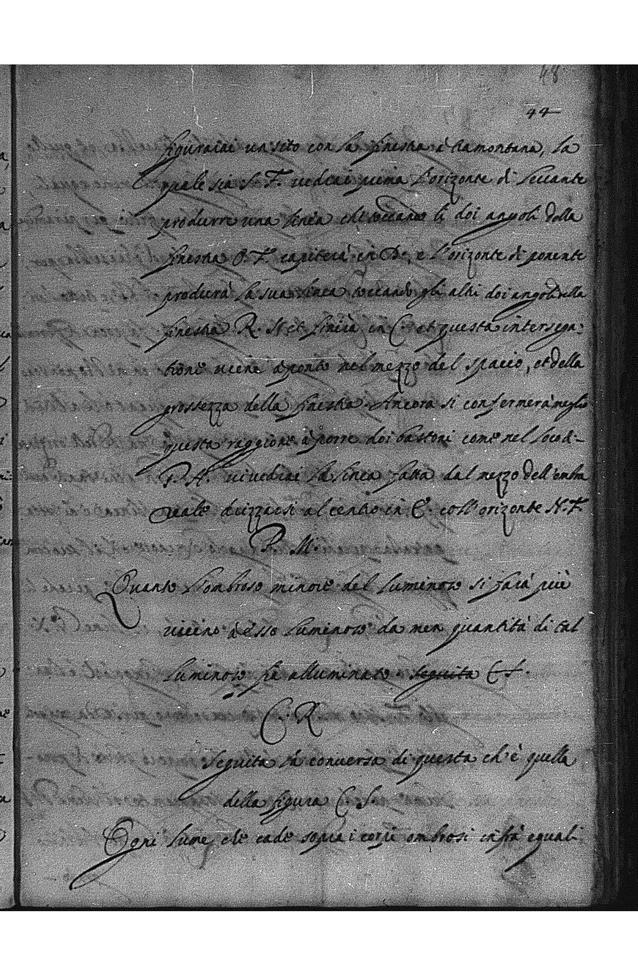 48
44
figurarai un sito con la finestra à tramontana, la
quale sia S. F. vedrai prima l'orizonte di levante
produrre una linea che toccando li doi angoli della
finestra P. F. capiterà in D., e l'orizonte di ponente
produrà la sua linea toccando gli altri doi angoli della
finestra R. N et finirà in C. et questa intersega-
tione viene aponto nel mezzo del spacio, et della
grossezza della finestra. Ancora si confermerà meglio
questa raggione à porre doi bastoni come nel loco di-
P. A. vi vedrai la linea fatta dal mezzo dell'ombra
reale drizzarsi al centro in C. coll'orizonte N. F.
P. M.
Quanto l'ombroso minore del luminoso si farà più
vicino à esso luminoso da men quantità di tal
luminoso fia alluminato seguita C S.
C. R.
Seguita la conversa di questa ch'è quella
della figura C. S.
Ogni lume che cade sopra i corpi ombrosi infrà equali